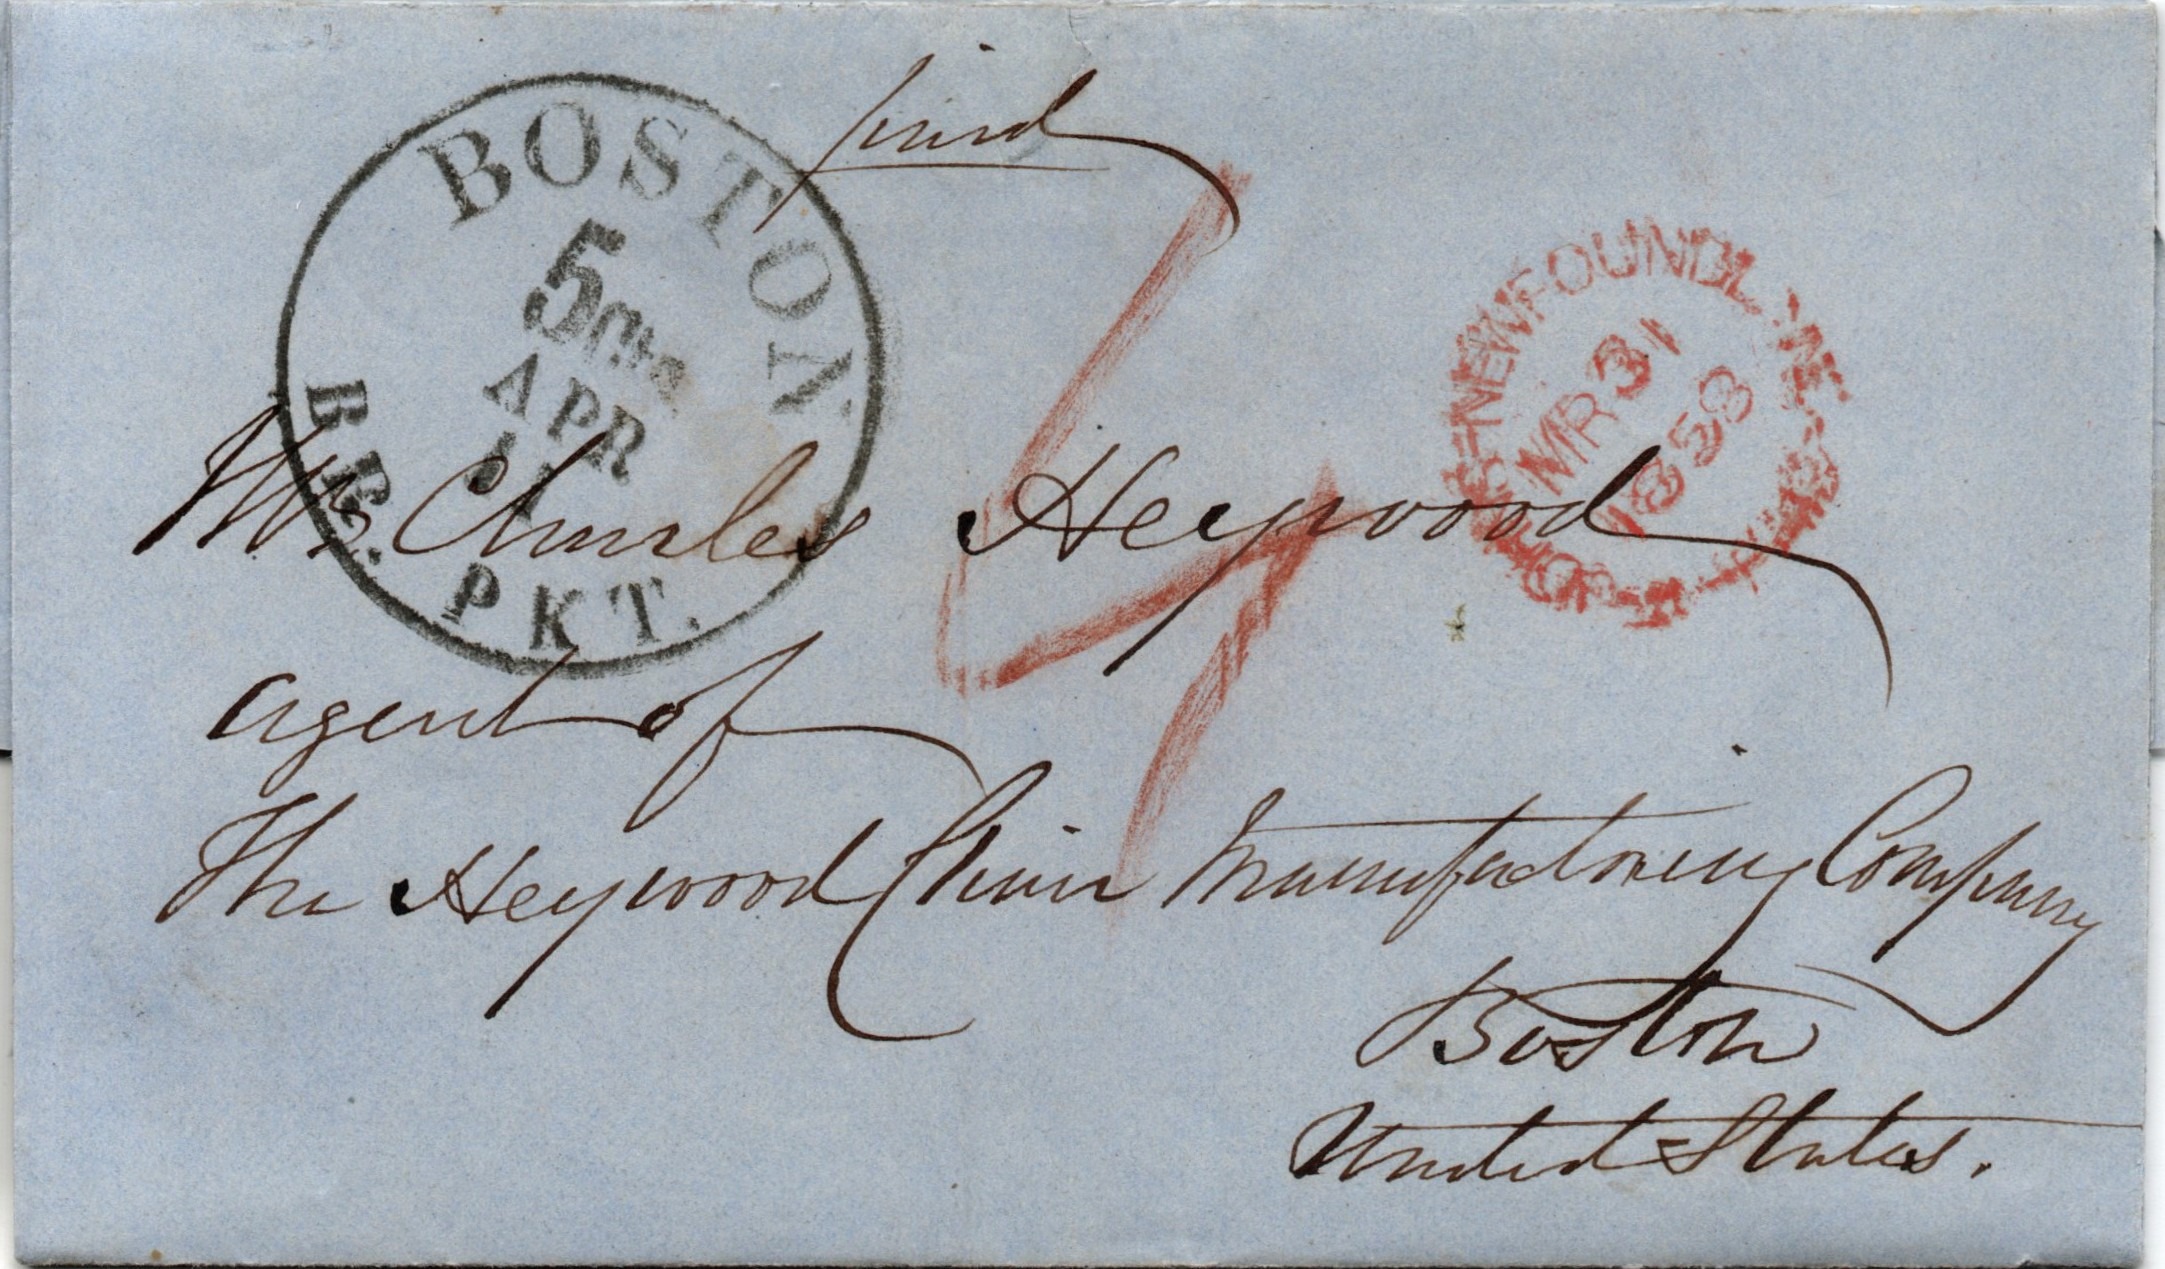 paid
BOSTON
5 cts
APR
11
BR. PKT.
4
ST NEWFOUNDL
MR 31
1858
Mr. Charles Heywood
agent of
The Heywood Chair Manufactoring Company
Boston
United States.